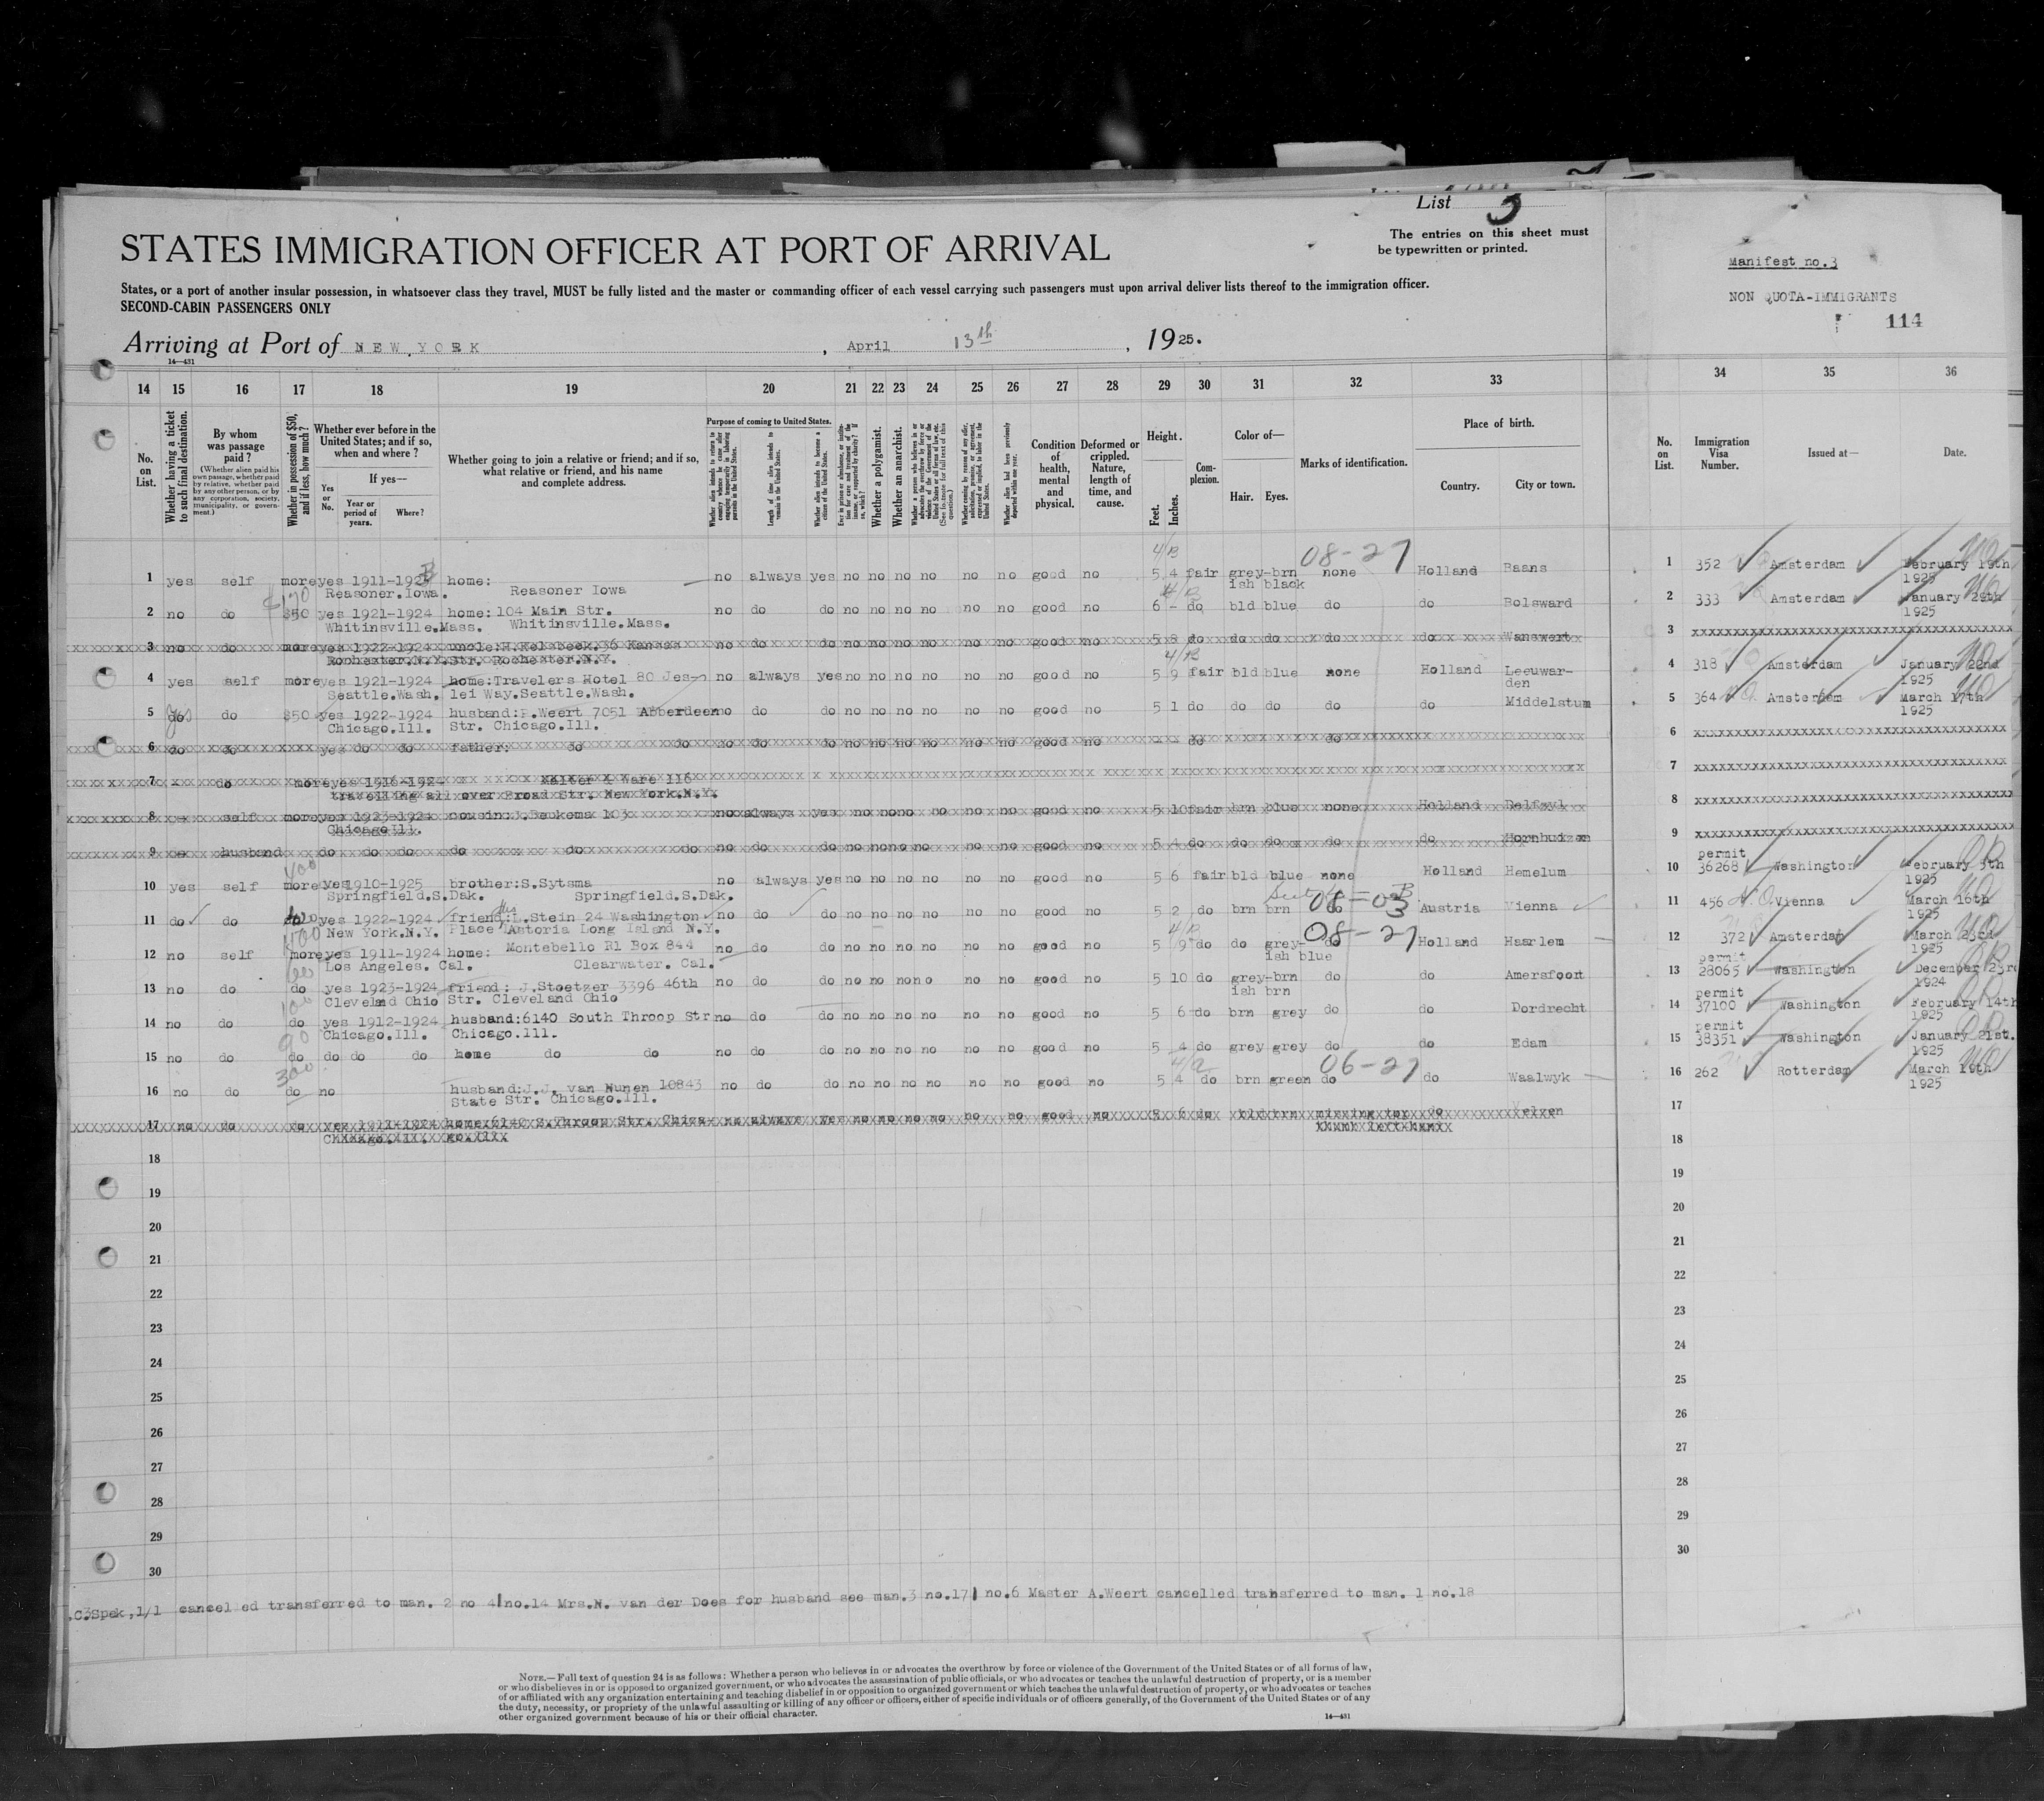 List 3
STATES IMMIGRATION OFFICER AT PORT OF ARRIVAL
The entries on this sheet must
be typewritten or printed.
States, or a port of another insular possession, in whatsoever class they travel, MUST be fully listed and the master or commanding officer of each vessel carrying such passengers must upon arrival deliver lists thereof to the immigration officer.
SECOND-CABIN PASSENGERS ONLY
Arriving at Port of NEW YORK, April 13th, 1925.
14—431
Manifest no.3
NON QUOTA-IMMIGRANTS
114
14 15 16 17 18 19 20 21 22 23 24 25 26 27 28 29 30 31 32 33 34 35 36
No. on List.
Whether having a ticket to such final destination.
By whom was passage paid?
(Whether alien paid his own passage, whether paid by relative, whether paid by any other person, or by any corporation, society, municipality, or government.)
Whether in possession of $50, and if less, how much?
Whether ever before in the United States; and if so, when and where?
If yes—
Yes or No.
Year or period of years.
Where?
Whether going to join a relative or friend; and if so, what relative or friend, and his name and complete address.
Purpose of coming to United States.
Whether alien intends to return to country whence he came after engaging temporarily in laboring pursuits in the United States.
Length of time alien intends to remain in the United States.
Whether alien intends to become a citizen of the United States.
Whether a polygamist.
Whether an anarchist.
Condition of health, mental and physical.
Deformed or crippled. Nature, length of time, and cause.
Height.
Feet.
Inches.
Complexion.
Color of—
Hair.
Eyes.
Marks of identification.
Place of birth.
Country.
City or town.
No. on List.
Immigration Visa Number.
Issued at—
Date.
08-27
1 yes self more yes 1911-1923 home: no always yes no no no no no no good no 5 4 fair grey-brn none Holland Baans 1 352 Amsterdam February 19th
Reasoner.Iowa. Reasoner Iowa ish black 1925
2 no do $50 yes 1921-1924 home:104 Main Str. no do do no no no no no no good no 6 - do bld blue do do Bolsward 2 333 Amsterdam January 29th
Whitinsville.Mass. Whitinsville.Mass. 1925
3 no do more yes 1922-1924 uncle:H. 36 Kansas no do do no no no no no no good no 5 8 do do do do do Wanswert 3
Rochester.N.Y. Str. Rochester.N.Y.
4 yes self more yes 1921-1924 home:Travelers Hotel 80 Jes- no always yes no no no no no no good no 5 9 fair bld blue none Holland Leeuwar- 4 318 Amsterdam January 22nd
Seattle.Wash. lei Way.Seattle.Wash. den 1925
5 do yes do $50 yes 1922-1924 husband:P.Weert 7051 Abberdeen no do do no no no no no no good no 5 1 do do do do do Middelstum 5 364 Amsterdam March 17th
Chicago.Ill. Str. Chicago.Ill. 1925
6 do do yes do do father: do do no do do no no no no no no good no - - do do 6
7 - do more yes 1916-1924 Walter & Ware 116 7
travelling all over Broad Str. New York.N.Y.
8 - self more yes 1923-1924 cousin:J.Beukema 103 no always yes no no no no no no good no 5 10 fair brn blue none Holland Delfzyl 8
Chicago Ill.
9 - husband do do do do do do no do do no no no no no no good no 5 4 do do do do do Hornhuizen 9
400 permit
10 yes self more yes 1910-1925 brother:S.Sytsma no always yes no no no no no no good no 5 6 fair bld blue none Holland Hemelum 10 36268 Washington February 5th
Springfield.S.Dak. Springfield.S.Dak. 1925
08-03
11 do do do yes 1922-1924 friend:L.Stein 24 Washington no do do no no no no no no good no 5 2 do brn brn do Austria Vienna 11 456 Vienna March 16th
New York.N.Y. Place Astoria Long Island N.Y. 1925
08-27
12 no self more yes 1911-1924 home: Montebello R1 Box 844 no do do no no no no no no good no 5 9 do do grey- do Holland Haarlem 12 372 Amsterdam March 23rd
Los Angeles. Cal. Clearwater. Cal. ish blue 1925
permit
13 no do do yes 1923-1924 friend: J.Stoetzer 3396 46th no do do no no no no no no good no 5 10 do grey-brn do do Amersfoort 13 28065 Washington December 23rd
Cleveland Ohio Str. Cleveland Ohio ish brn 1924
100 permit
14 no do do yes 1912-1924 husband:6140 South Throop Str no do do no no no no no no good no 5 6 do brn grey do do Dordrecht 14 37100 Washington February 14th
Chicago.Ill. Chicago.Ill. 1925
90 permit
15 no do do do do do home do do no do do no no no no no no good no 5 4 do grey grey do do Edam 15 38351 Washington January 21st.
1925
300 06-27
16 no do do no husband:J.J. van Nunen 10843 no do do no no no no no no good no 5 4 do brn green do do Waalwyk 16 262 Rotterdam March 19th
State Str. Chicago.Ill. 1925
17 no do do yes 1911-1924 home.6140 S.Throop Str. Chica- no always yes no no no no no no good no 5 6 do bld brn missing top do Velzen 17
Chicago.Ill. go.Ill. thumb left hand
18 18
19 19
20 20
21 21
22 22
23 23
24 24
25 25
26 26
27 27
28 28
29 29
30 30
.C.Spek,1/1 cancelled transferred to man. 2 no 4 no.14 Mrs.N. van der Does for husband see man.3 no.17 no.6 Master A.Weert cancelled transferred to man. 1 no.18
NOTE.—Full text of question 24 is as follows: Whether a person who believes in or advocates the overthrow by force or violence of the Government of the United States or of all forms of law,
or who disbelieves in or is opposed to organized government, or who advocates the assassination of public officials, or who advocates or teaches the unlawful destruction of property, or is a member
of or affiliated with any organization entertaining and teaching disbelief in or opposition to organized government or which teaches the unlawful destruction of property, or who advocates or teaches
the duty, necessity, or propriety of the unlawful assaulting or killing of any officer or officers, either of specific individuals or of officers generally, of the Government of the United States or of any
other organized government because of his or their official character.
14—431